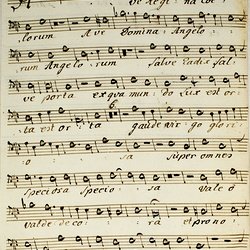 ve Regina coe-
lorum Ave Domina Angelo-
rum Angelorum salve radix sal-
ve porta ex qua mundo lux est or-
ta est orta gaude virgo glori-
o sa super omnes
speciosa specio sa vale ò
valde deco ra et pro no-